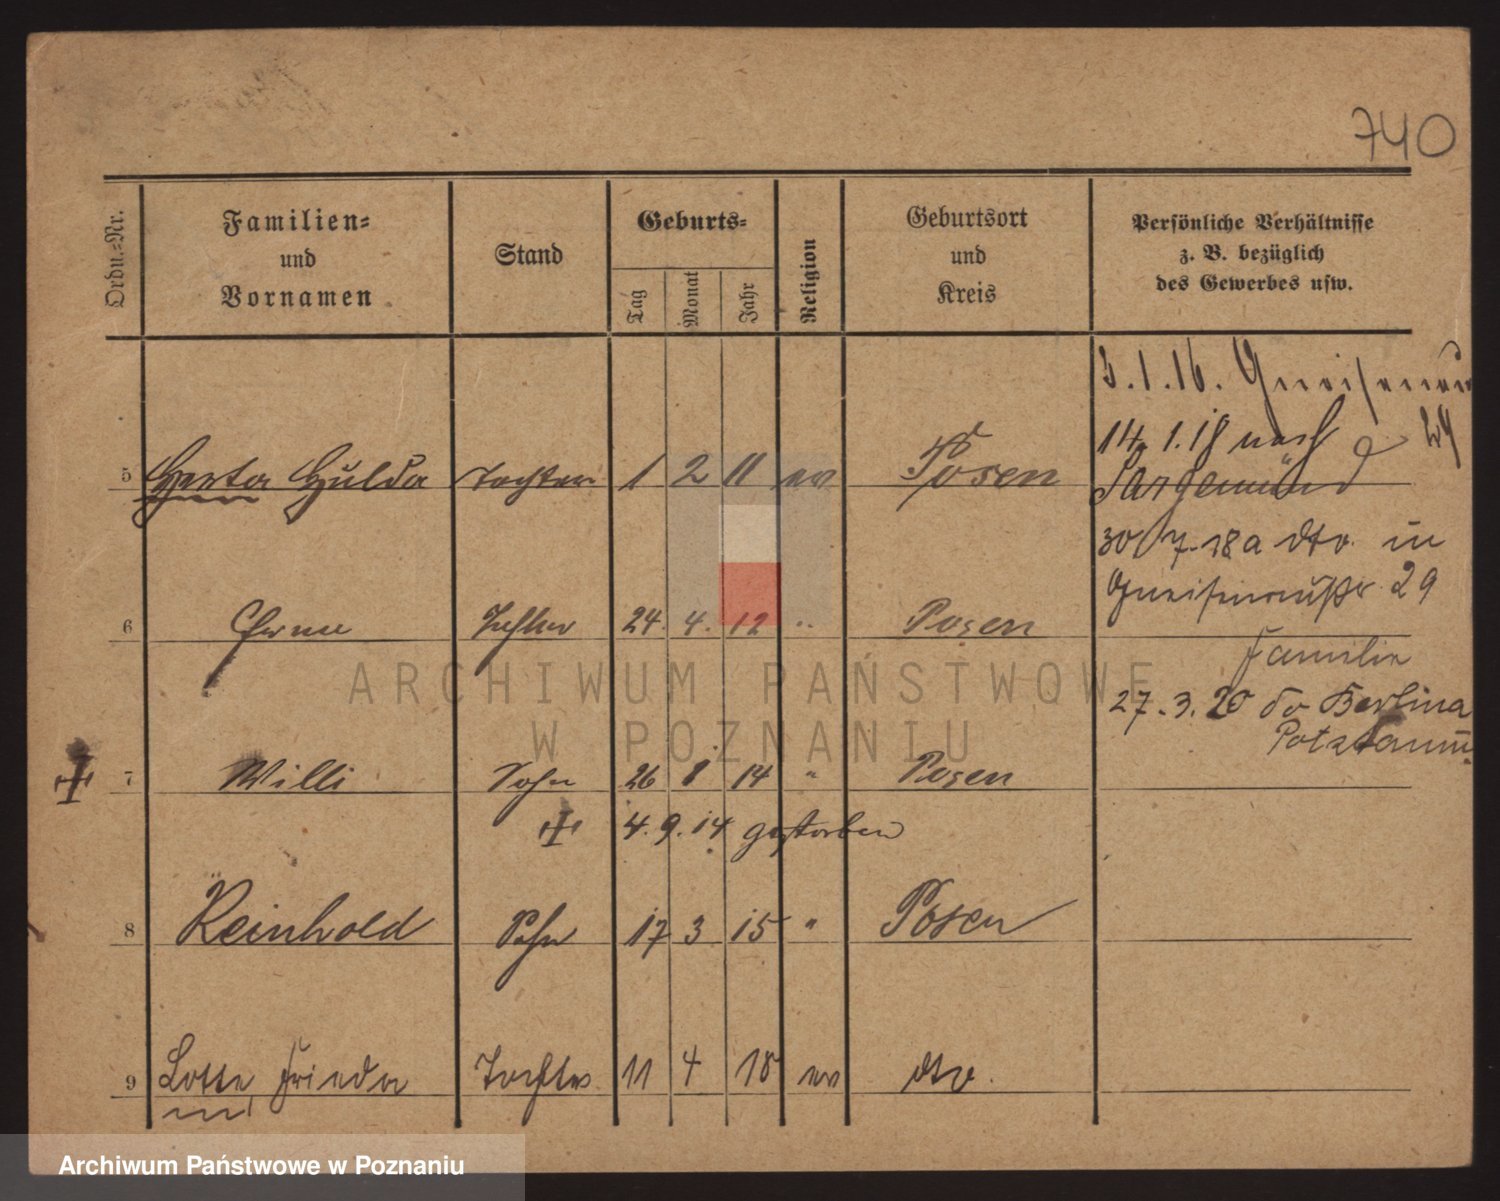 740
Ordn.-Nr.
Familien-
und
Vornamen
Stand
Geburts-
Tag
Monat
Jahr
Religion
Geburtsort
und
Kreis
Persönliche Verhältnisse
z. B. bezüglich
des Gewerbes usw.
3.1.16. Gneisenau
29
14.1.18 nach
5 Herta Hulda Tochter 1 2 11 ev Posen Sargemünd
30/7.18 a dto. in
Gneisenaustr. 29
6 Erna Tochter 24. 4. 12 " Posen
Familie
27.3.20 do Berlina
7 Willi Sohn 26 1 14 " Posen
4.9.14 gestorben
8 Reinhold Sohn 17 3 15 " Posen
9 Lotte, Frieda Tochter 11 4 18 ev dto.
ARCHIWUM PAŃSTWOWE
W POZNANIU
Archiwum Państwowe w Poznaniu